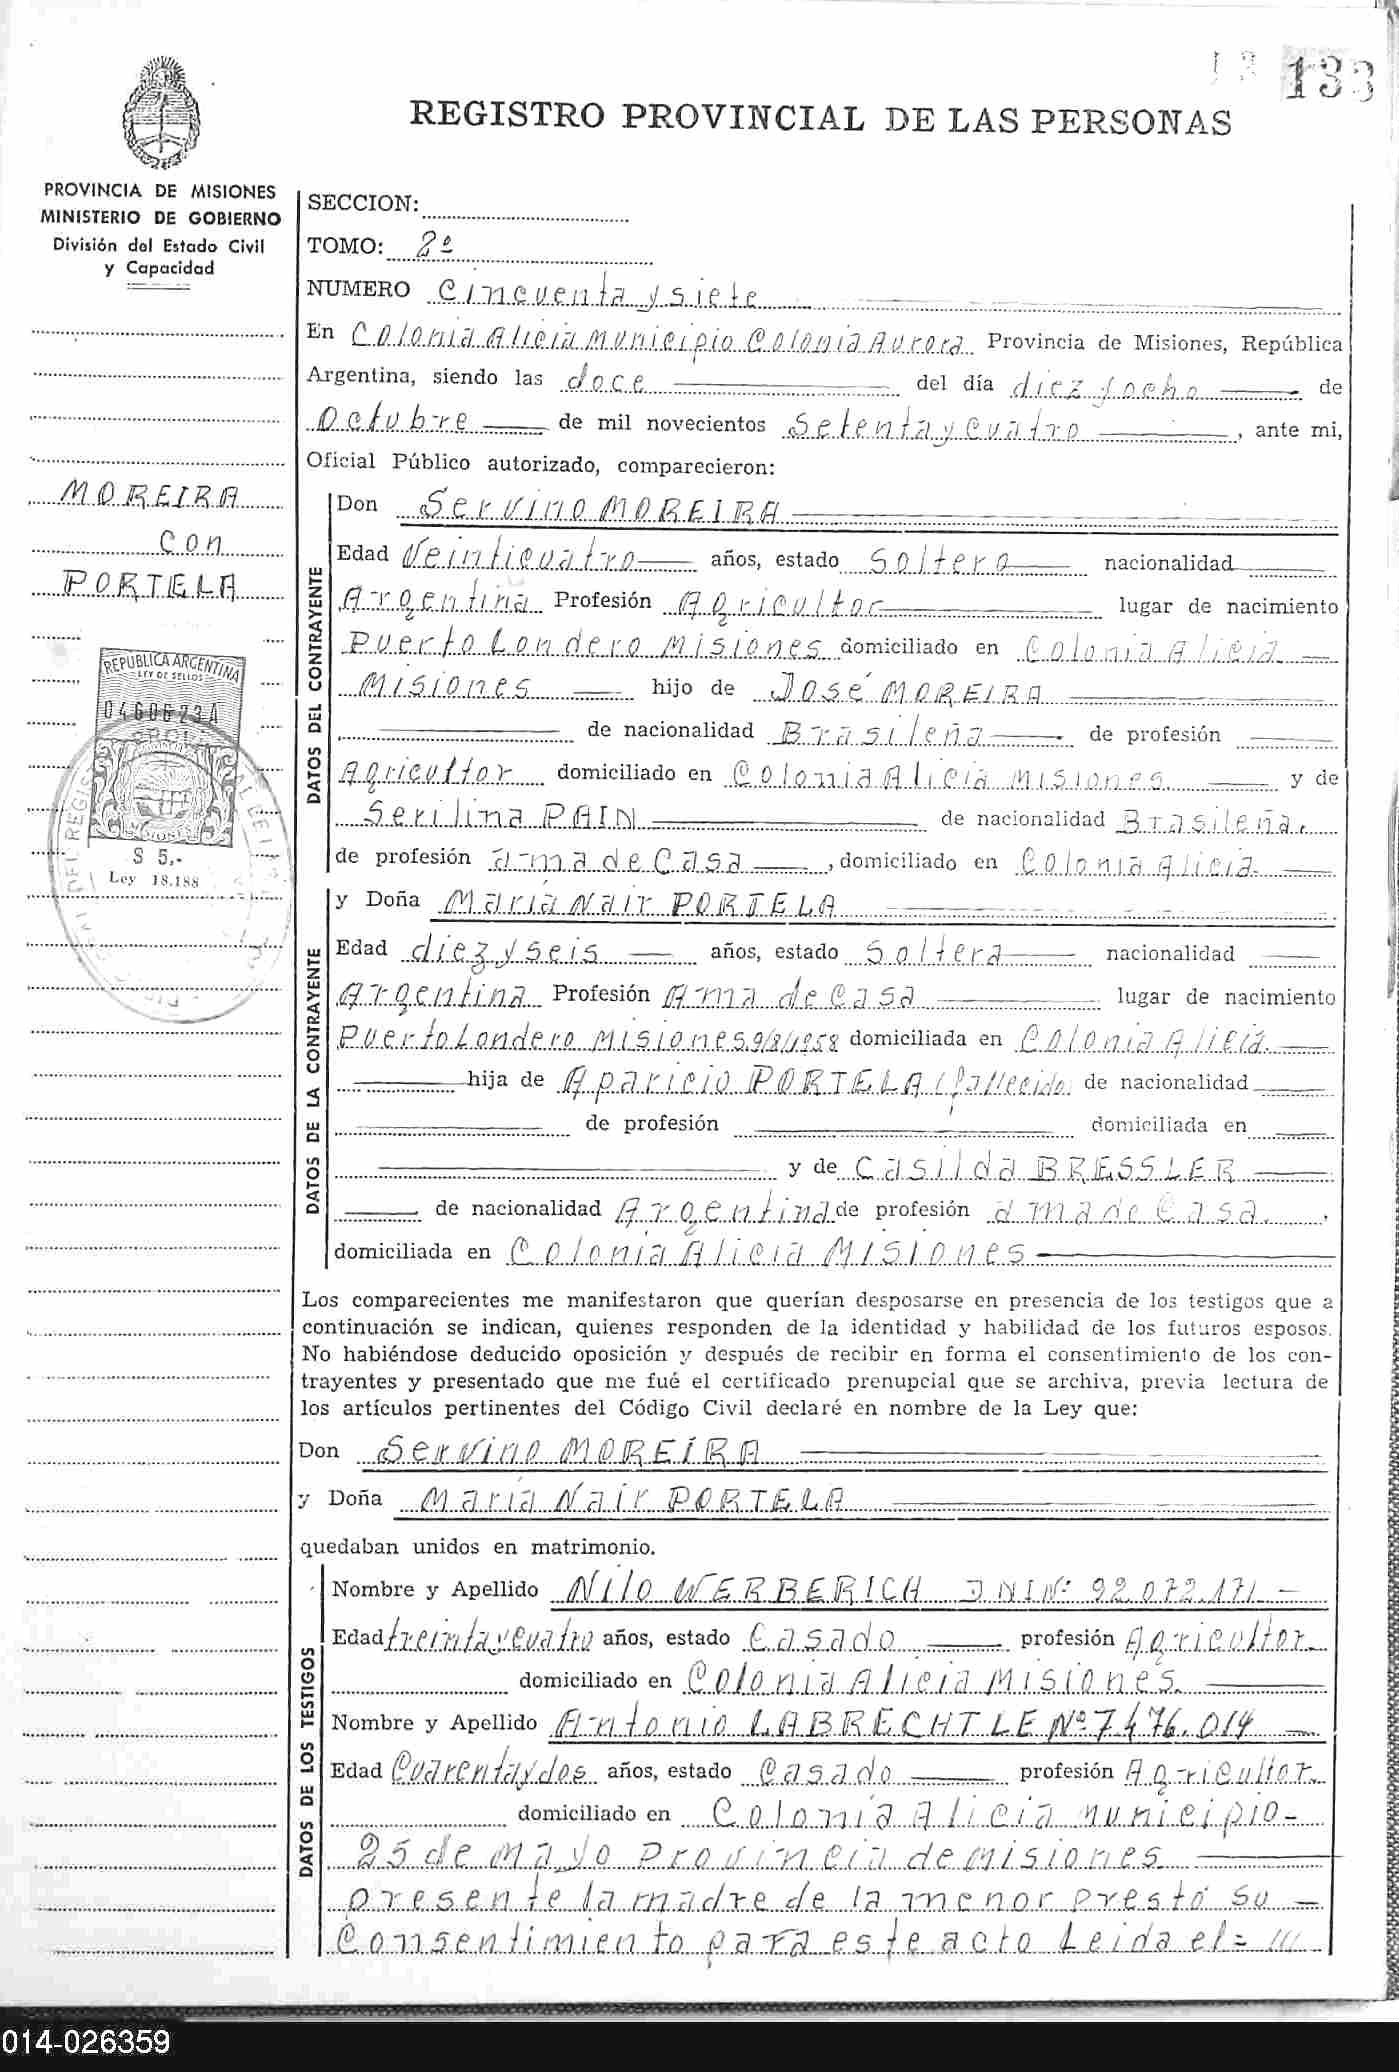 133
REGISTRO PROVINCIAL DE LAS PERSONAS
PROVINCIA DE MISIONES
MINISTERIO DE GOBIERNO
División del Estado Civil
y Capacidad
MOREIRA
con
PORTELA
REPUBLICA ARGENTINA
LEY DE SELLOS
MISIONES
$ 5,-
Ley 18.188
SECCION:
TOMO: 2º
NUMERO Cincuenta y siete
En Colonia Alicia Municipio Colonia Aurora Provincia de Misiones, República
Argentina, siendo las doce del día diez y ocho de
Octubre de mil novecientos Setenta y cuatro, ante mi,
Oficial Público autorizado, comparecieron:
DATOS DEL CONTRAYENTE
Don Servino MOREIRA
Edad Veinticuatro años, estado Soltero nacionalidad
Argentina Profesión Agricultor lugar de nacimiento
Puerto Londero Misiones domiciliado en Colonia Alicia
Misiones hijo de José MOREIRA
de nacionalidad Brasileña de profesión
Agricultor domiciliado en Colonia Alicia Misiones. y de
Serilina PAIN de nacionalidad Brasileña,
de profesión ama de Casa, domiciliado en Colonia Alicia.
DATOS DE LA CONTRAYENTE
y Doña Maria Nair PORTELA
Edad diez y seis años, estado Soltera nacionalidad
Argentina Profesión Ama de Casa lugar de nacimiento
Puerto Londero Misiones 9/8/1958 domiciliada en Colonia Alicia.
hija de Aparicio PORTELA (fallecido) de nacionalidad
de profesión domiciliada en
y de Casilda BRESSLER
de nacionalidad Argentina de profesión ama de Casa.,
domiciliada en Colonia Alicia Misiones
Los comparecientes me manifestaron que querían desposarse en presencia de los testigos que a
continuación se indican, quienes responden de la identidad y habilidad de los futuros esposos.
No habiéndose deducido oposición y después de recibir en forma el consentimiento de los con-
trayentes y presentado que me fué el certificado prenupcial que se archiva, previa lectura de
los artículos pertinentes del Código Civil declaré en nombre de la Ley que:
Don Servino MOREIRA
y Doña Maria Nair PORTELA
quedaban unidos en matrimonio.
DATOS DE LOS TESTIGOS
Nombre y Apellido Nilo WERBERICH DNI Nº 92.072.171
Edad treinta y cuatro años, estado Casado profesión Agricultor
domiciliado en Colonia Alicia Misiones.
Nombre y Apellido Antonio LABRECHT LE Nº 7.476.014
Edad Cuarenta y dos años, estado Casado profesión Agricultor.
domiciliado en Colonia Alicia Municipio
25 de Mayo Provincia de Misiones.
presente la madre de la menor prestó su
Consentimiento para este acto Leida el= ///
014-026359